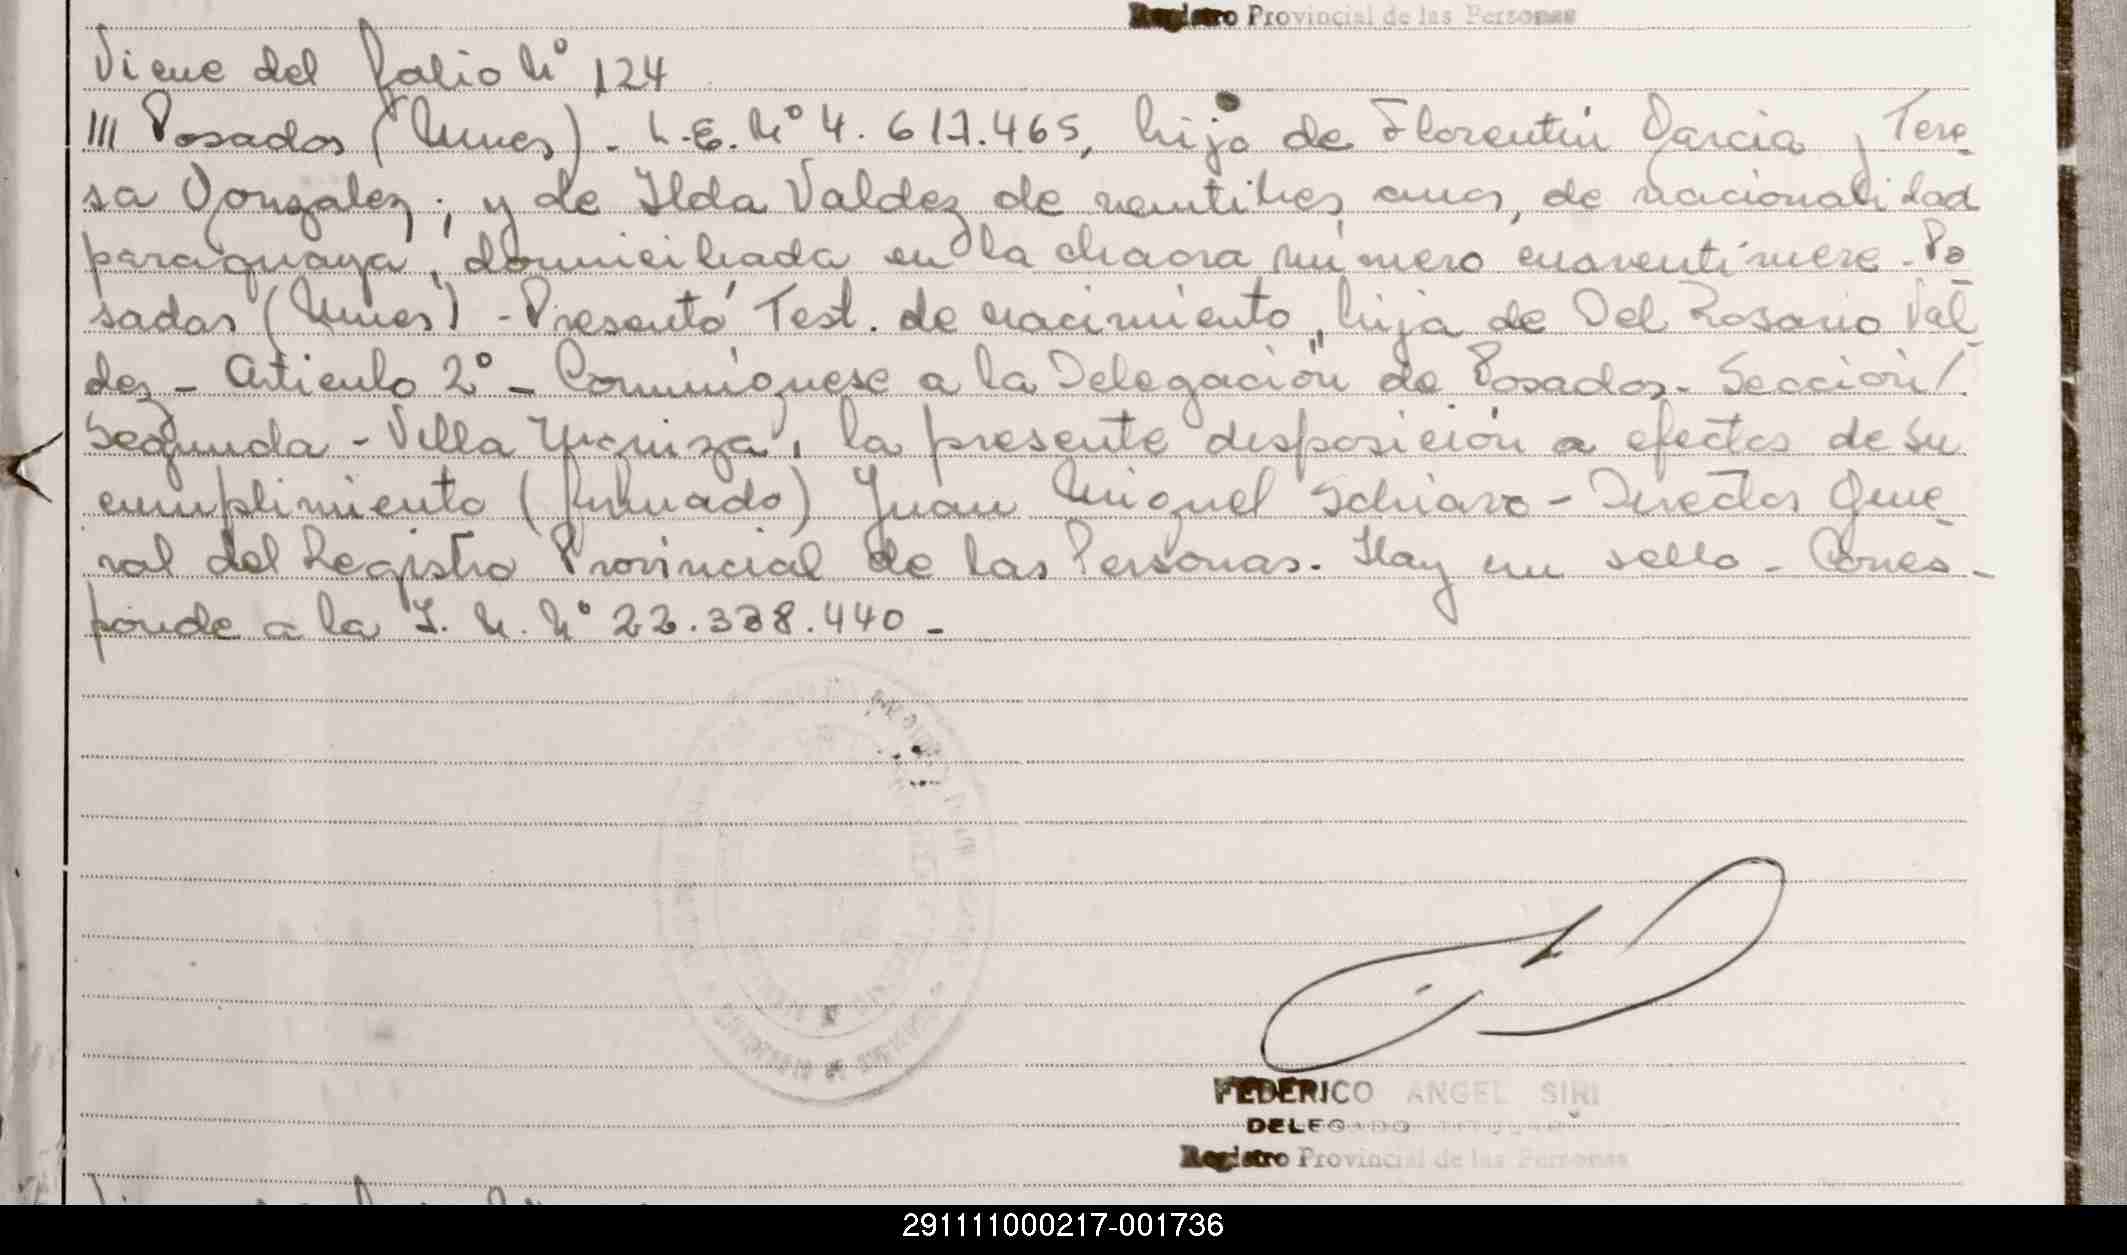 Registro Provincial de las Personas
Viene del folio Nº 124
/// Posadas (Mnes). L.E. Nº 4.617.465, hijo de Florentín Garcia y Tere
sa Gonzalez; y de Ilda Valdez de ventitres anos, de nacionalidad
paraguaya, domiciliada en la chacra número cuarentinueve. Po
sadas (Mnes) - Presentó Test. de nacimiento, hija de Del Rosario Val
dez - Articulo 2º - Comuníquese a la Delegación de Posadas. Sección/
Segunda - Villa Urquiza, la presente disposición a efectos de su
cumplimiento (firmado) Juan Miguel Schiaro - Director Gene
ral del Registro Provincial de las Personas. Hay un sello - Corres-
ponde a la I. N. Nº 22.338.440 -
FEDERICO ANGEL SIRI
DELEGADO TITULAR
Registro Provincial de las Personas
291111000217-001736